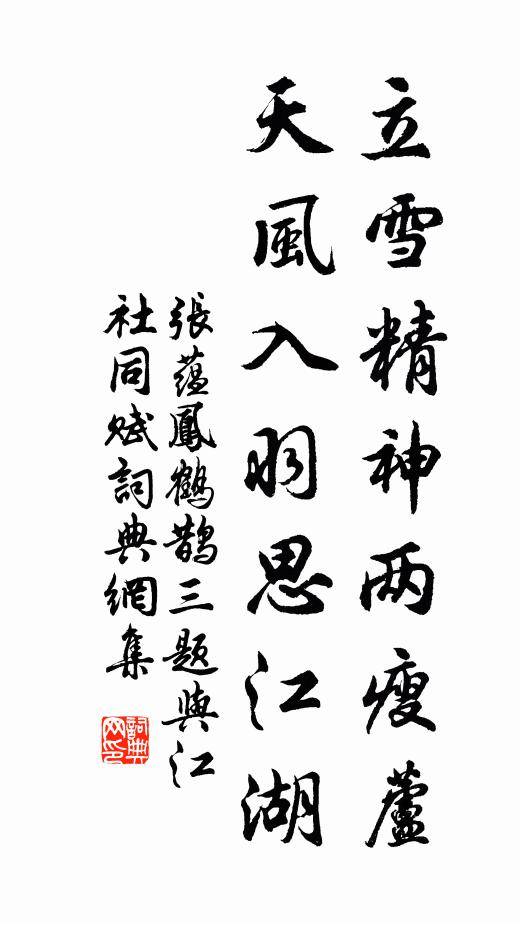 立雪精神两瘦蘆
天風入羽思江湖
張蘊鳳鶴鵲三題與江
社同賦詞典網集
詞典
网印